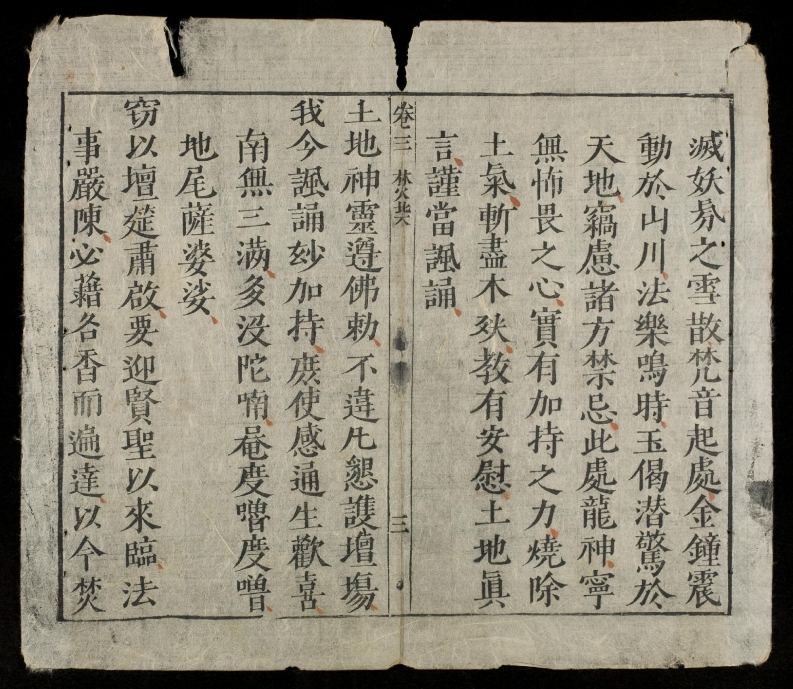 滅妖氛之雪散梵音起處金鐘震
動於山川法樂鳴時玉偈潛驚於
天地竊慮諸方禁忌此處龍神寧
無怖畏之心實有加持之力燒除
土氣斬盡木殃教有安慰土地眞
言謹當諷誦
卷三 三
土地神靈遵佛勅不違凢懇護壇場
我今諷誦妙加持庻使感通生歡喜
南無三滿多没陀喃菴度嚕度嚕
地尾薩婆娑
窃以壇筵肅啟要迎賢聖以來臨法
事嚴陳必藉名香而遍達以今焚